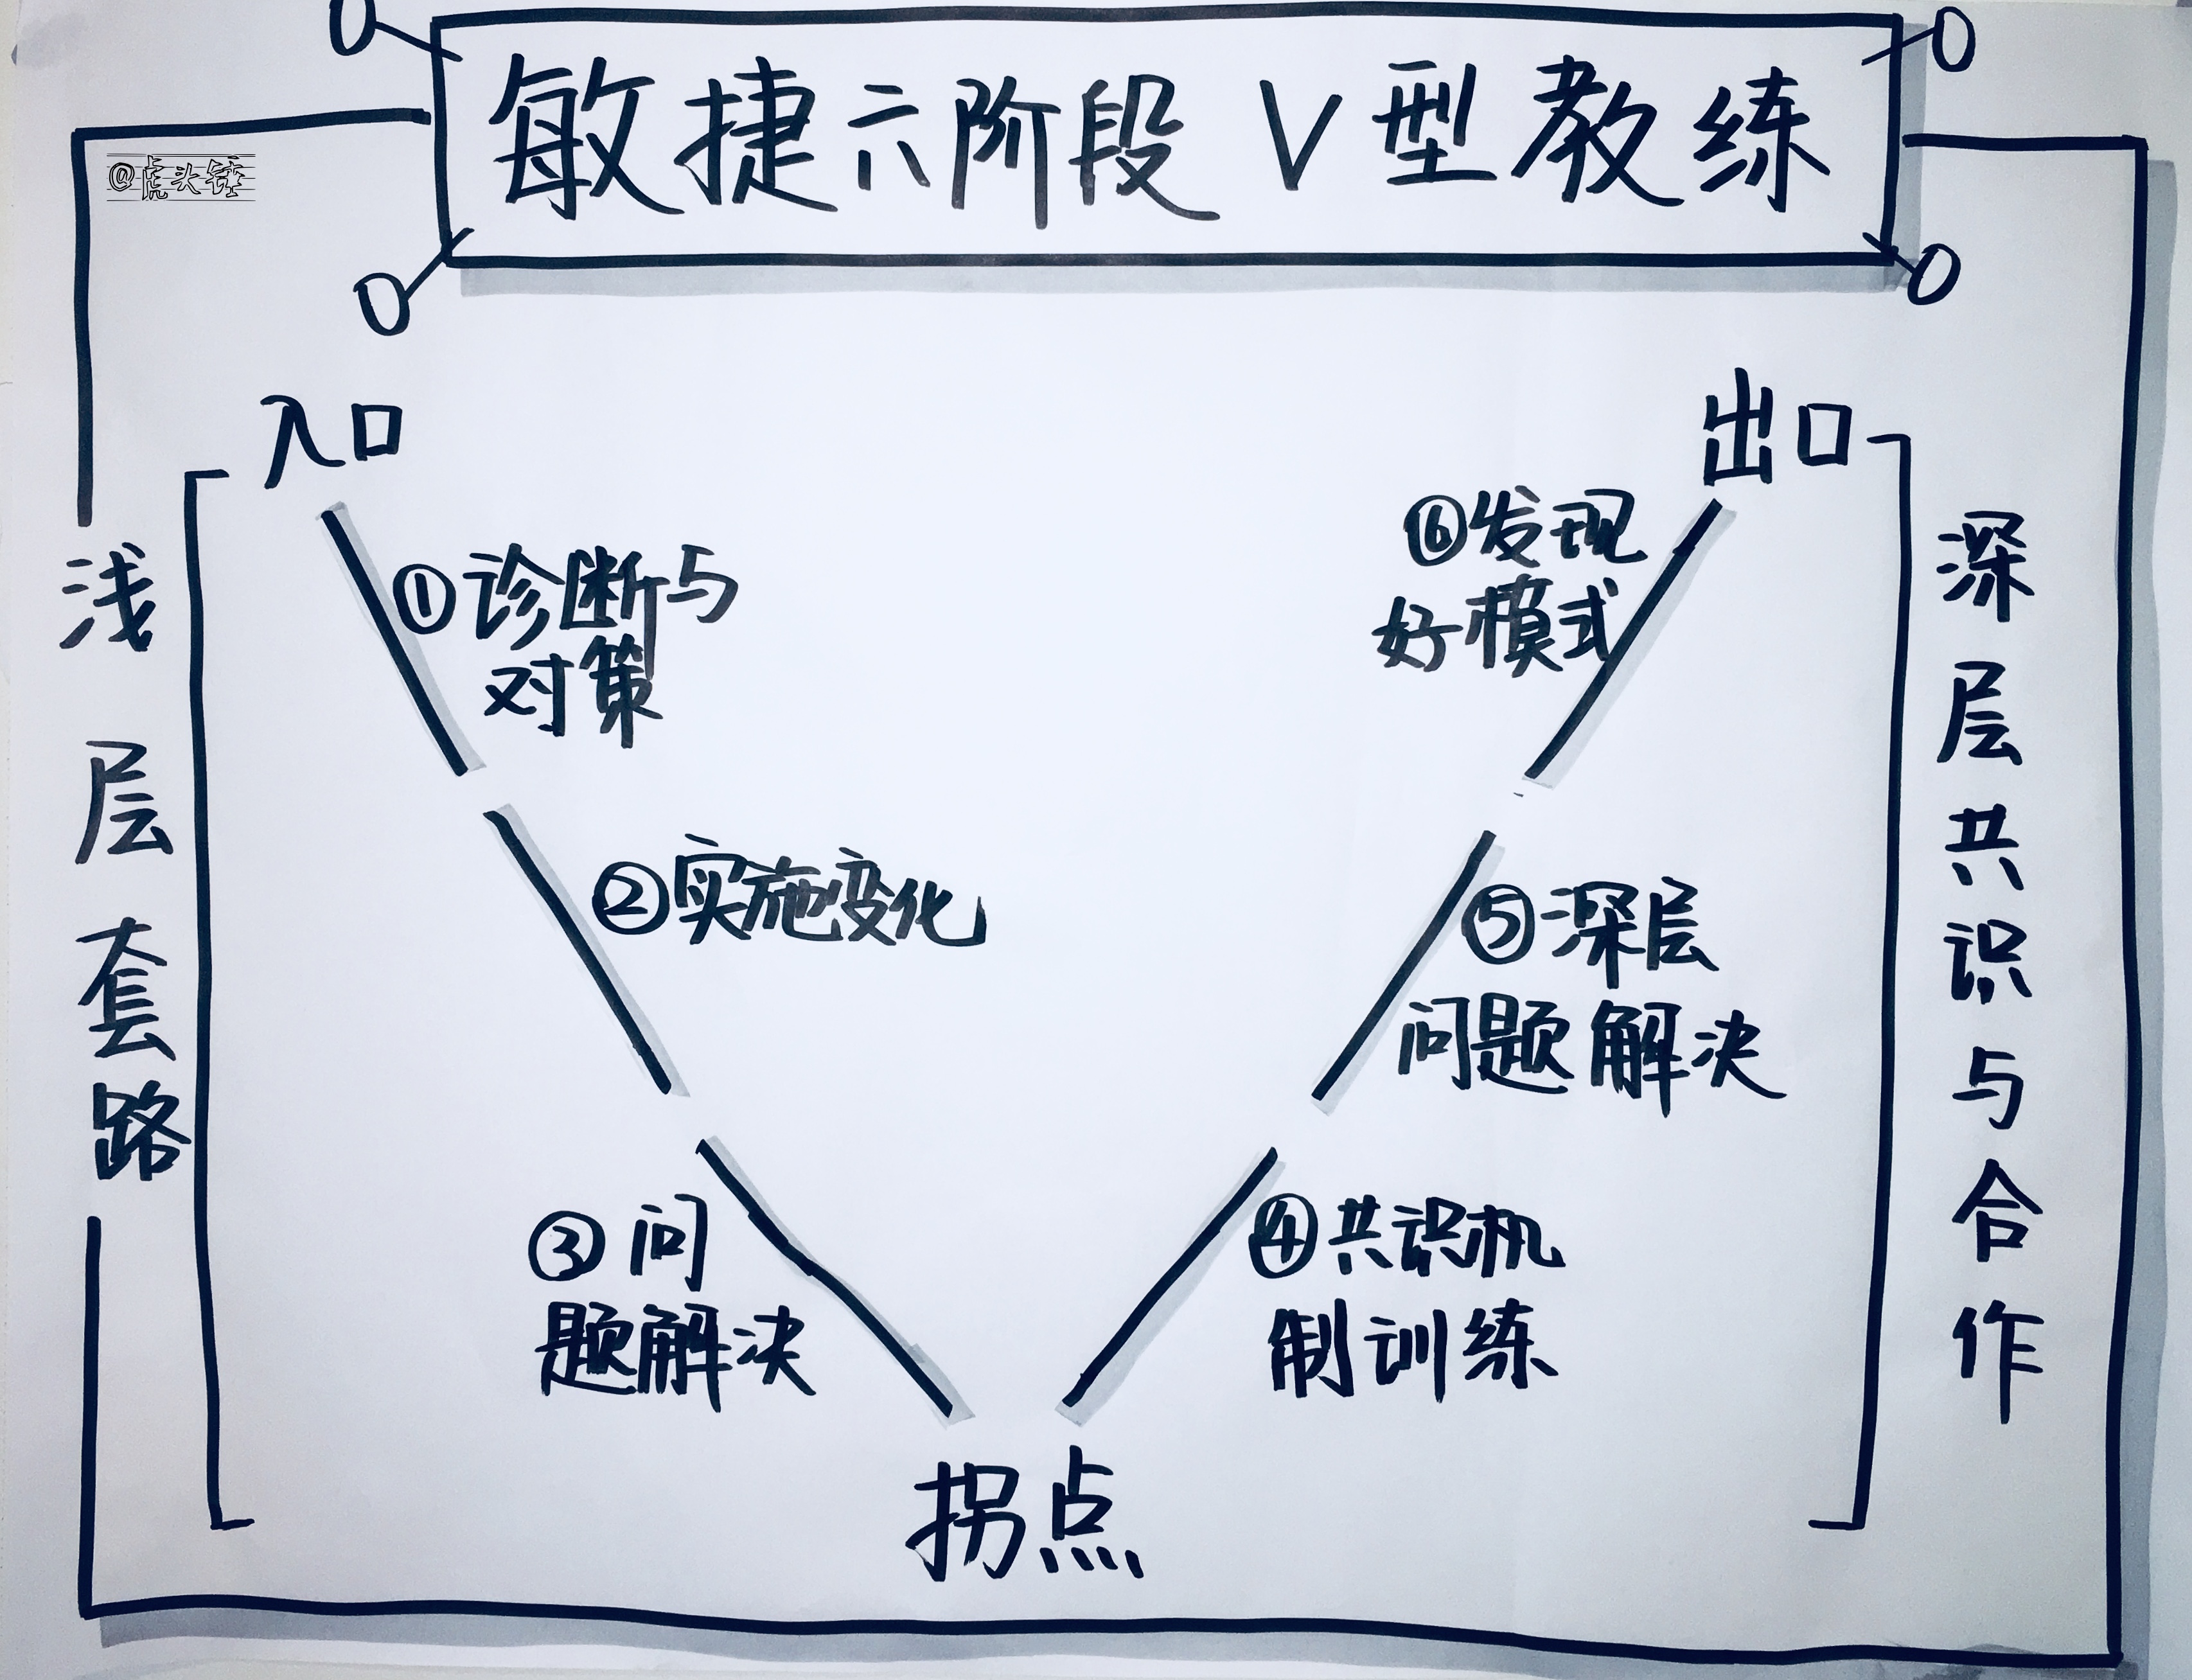 敏捷六阶段 V型教练
@虎头锤
入口
出口
浅层套路
①诊断与
对策
②实施变化
③问
题解决
拐点
④共识机
制训练
⑤深层
问题解决
⑥发现
好模式
深层共识与合作